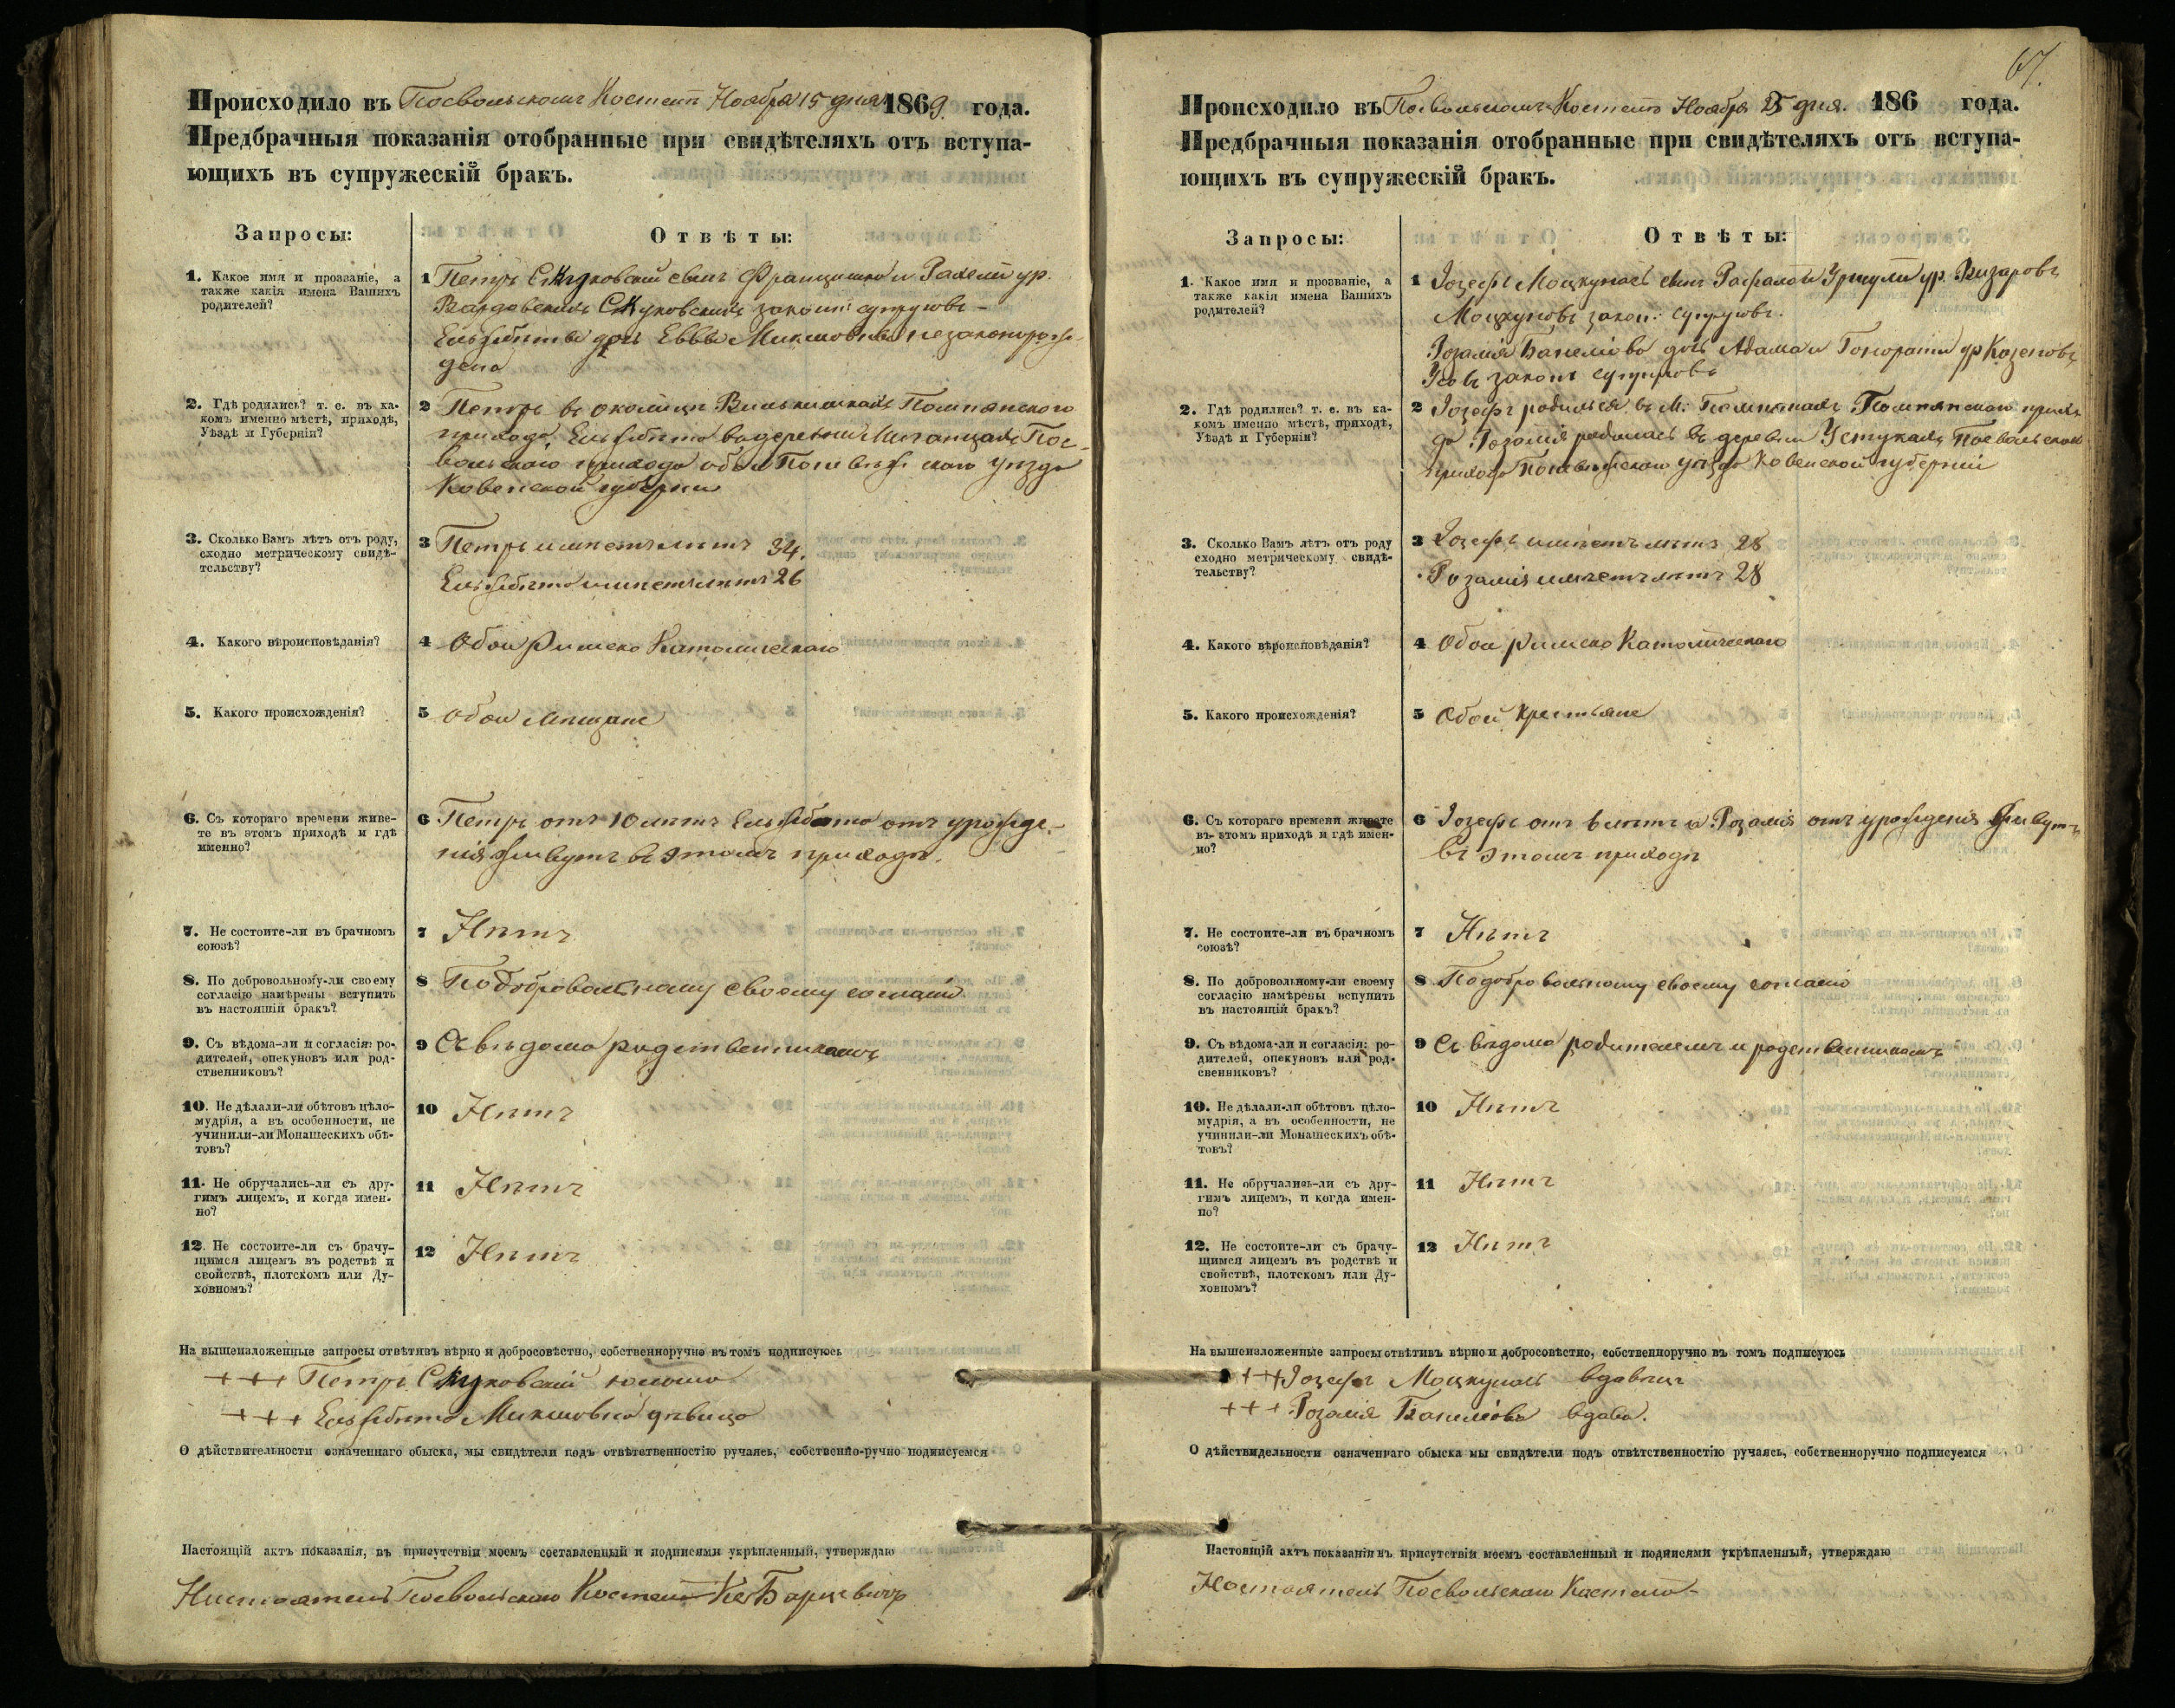 Происходило въ Посвольскомъ Костелѣ Ноября 15 дня 1869 года.
Предбрачныя показанія отобранные при свидѣтеляхъ отъ вступа-
ющихъ въ супружескій бракъ.
Запросы:
Отвѣты:
1. Какое имя и прозваніе, а
также какія имена Вашихъ
родителей?
1 Петръ Скуковскій сынъ Францишка и Рахели ур.
Скуковскихъ закон: супруговъ -
Ельжбѣта дочь Еввы Микшовны незаконорож-
дена
2. Гдѣ родились? т. е. въ ка-
комъ именно мѣстѣ, приходѣ,
Уѣздѣ и Губерніи?
2 Петръ въ околицѣ Помпянского
прихода, Ельжбѣта въ деревни Пос-
вольскаго прихода обои Поневѣжскаго уѣзда
Ковенской губерни
3. Сколько Вамъ лѣтъ отъ роду,
сходно метрическому свидѣ-
тельству?
3 Петръ имѣетъ лѣтъ 34.
Ельжбѣта имѣетъ лѣтъ 26
4. Какого вѣроисповѣданія?
4 Обои Римско Католическаго
5. Какого происхожденія?
5 Обои Мѣщане
6. Съ котораго времени живе-
те въ этомъ приходѣ и гдѣ
именно?
6 Петръ отъ 10 лѣтъ Ельжбѣта отъ урожде-
нія живутъ въ этомъ приходѣ.
7. Не состоите-ли въ брачномъ
союзѣ?
7 Нѣтъ
8. По добровольному-ли своему
согласію намѣрены вступить
въ настоящій бракъ?
8 По добровольному своему согласію
9. Съ вѣдома-ли и согласія: ро-
дителей, опекуновъ или род-
ственниковъ?
9 Съ вѣдома родственникамъ
10. Не дѣлали-ли обѣтовъ цѣло-
мудрія, а въ особенности, не
учинили-ли Монашескихъ обѣ-
товъ?
10 Нѣтъ
11. Не обручались-ли съ дру-
гимъ лицемъ, и когда имен-
но?
11 Нѣтъ
12. Не состоите-ли съ брачу-
щимся лицемъ въ родствѣ и
свойствѣ, плотскомъ или Ду-
ховномъ?
12 Нѣтъ
На вышеизложенные запросы отвѣтивъ вѣрно и добросовѣстно, собственоручно въ томъ подписуюсь
+++ Петръ Скуковскій юноша
+++ Ельжбѣта Микшовна дѣвица
О дѣйствительности означеннаго обыска, мы свидѣтели подъ отвѣтственностію ручаясь, собственно-ручно подписуемся
Настоящій актъ показанія, въ присутствіи моемъ составленный и подписями укрѣпленный, утверждаю
Настоятель Посвольскаго Костела Кс Барцевичъ
67.
Происходило въ Посвольскомъ Костелѣ Ноября 25 дня. 186 года.
Предбрачныя показанія отобранные при свидѣтеляхъ отъ вступа-
ющихъ въ супружескій бракъ.
Запросы:
Отвѣты:
1. Какое имя и прозваніе, а
также какія имена Вашихъ
родителей?
1 Іозефъ Моцкунасъ сынъ Рафала и Уршули ур. Визаровъ
Моцкуновъ закон: супруговъ.
Розалія Банеліова дочь Адама и Гонораты ур
закон супруговъ
2. Гдѣ родились? т. е. въ ка-
комъ именно мѣстѣ, приходѣ,
Уѣздѣ и Губерніи?
2 Іозефъ родился въ М. Помпянахъ Помпянскаго прихо-
да. Розалія родилась въ деревни Устукахъ Посвольскаго
прихода Поневѣжскаго уѣзда Ковенской губерніи
3. Сколько Вамъ лѣтъ отъ роду
сходно метрическому свидѣ-
тельству?
3 Іозефъ имѣетъ лѣтъ 28
Розалія имѣетъ лѣтъ 28
4. Какого вѣроисповѣданія?
4 Обои Римско Католическаго
5. Какого происхожденія?
5 Обой Крестьяне
6. Съ котораго времени живете
въ этомъ приходѣ и гдѣ имен-
но?
6 Іозефъ отъ лѣтъ и Розалія отъ урожденія живутъ
въ этомъ приходѣ
7. Не состоите-ли въ брачномъ
союзѣ?
7 Нѣтъ
8. По добровольному-ли своему
согласію намѣрены вступить
въ настоящій бракъ?
8 По добровольному своему согласію
9. Съ вѣдома-ли и согласія: ро-
дителей, опекуновъ или род-
свенниковъ?
9 Съ вѣдома родителемъ и родственникамъ
10. Не дѣлали-ли обѣтовъ цѣло-
мудрія, а въ особенности, не
учинили-ли Монашескихъ обѣ-
товъ?
10 Нѣтъ
11. Не обручались-ли съ дру-
гимъ лицемъ, и когда имен-
но?
11 Нѣтъ
12. Не состоите-ли съ брачу-
щимся лицемъ въ родствѣ и
свойствѣ, плотскомъ или Ду-
ховномъ?
12 Нѣтъ
На вышеизложенные запросы отвѣтивъ вѣрно и добросовѣстно, собственноручно въ томъ подписуюсь
+++ Іозефъ Моцкунасъ вдавецъ
+++ Розалія Банеліова вдава.
О дѣйствидельности означеннаго обыска мы свидѣтели подъ отвѣтственностію ручаясь, собственноручно подписуемся
Настоящій актъ показанія въ присутствіи моемъ составленный и подписями укрѣпленный, утверждаю
Настоятель Посвольскаго Костела